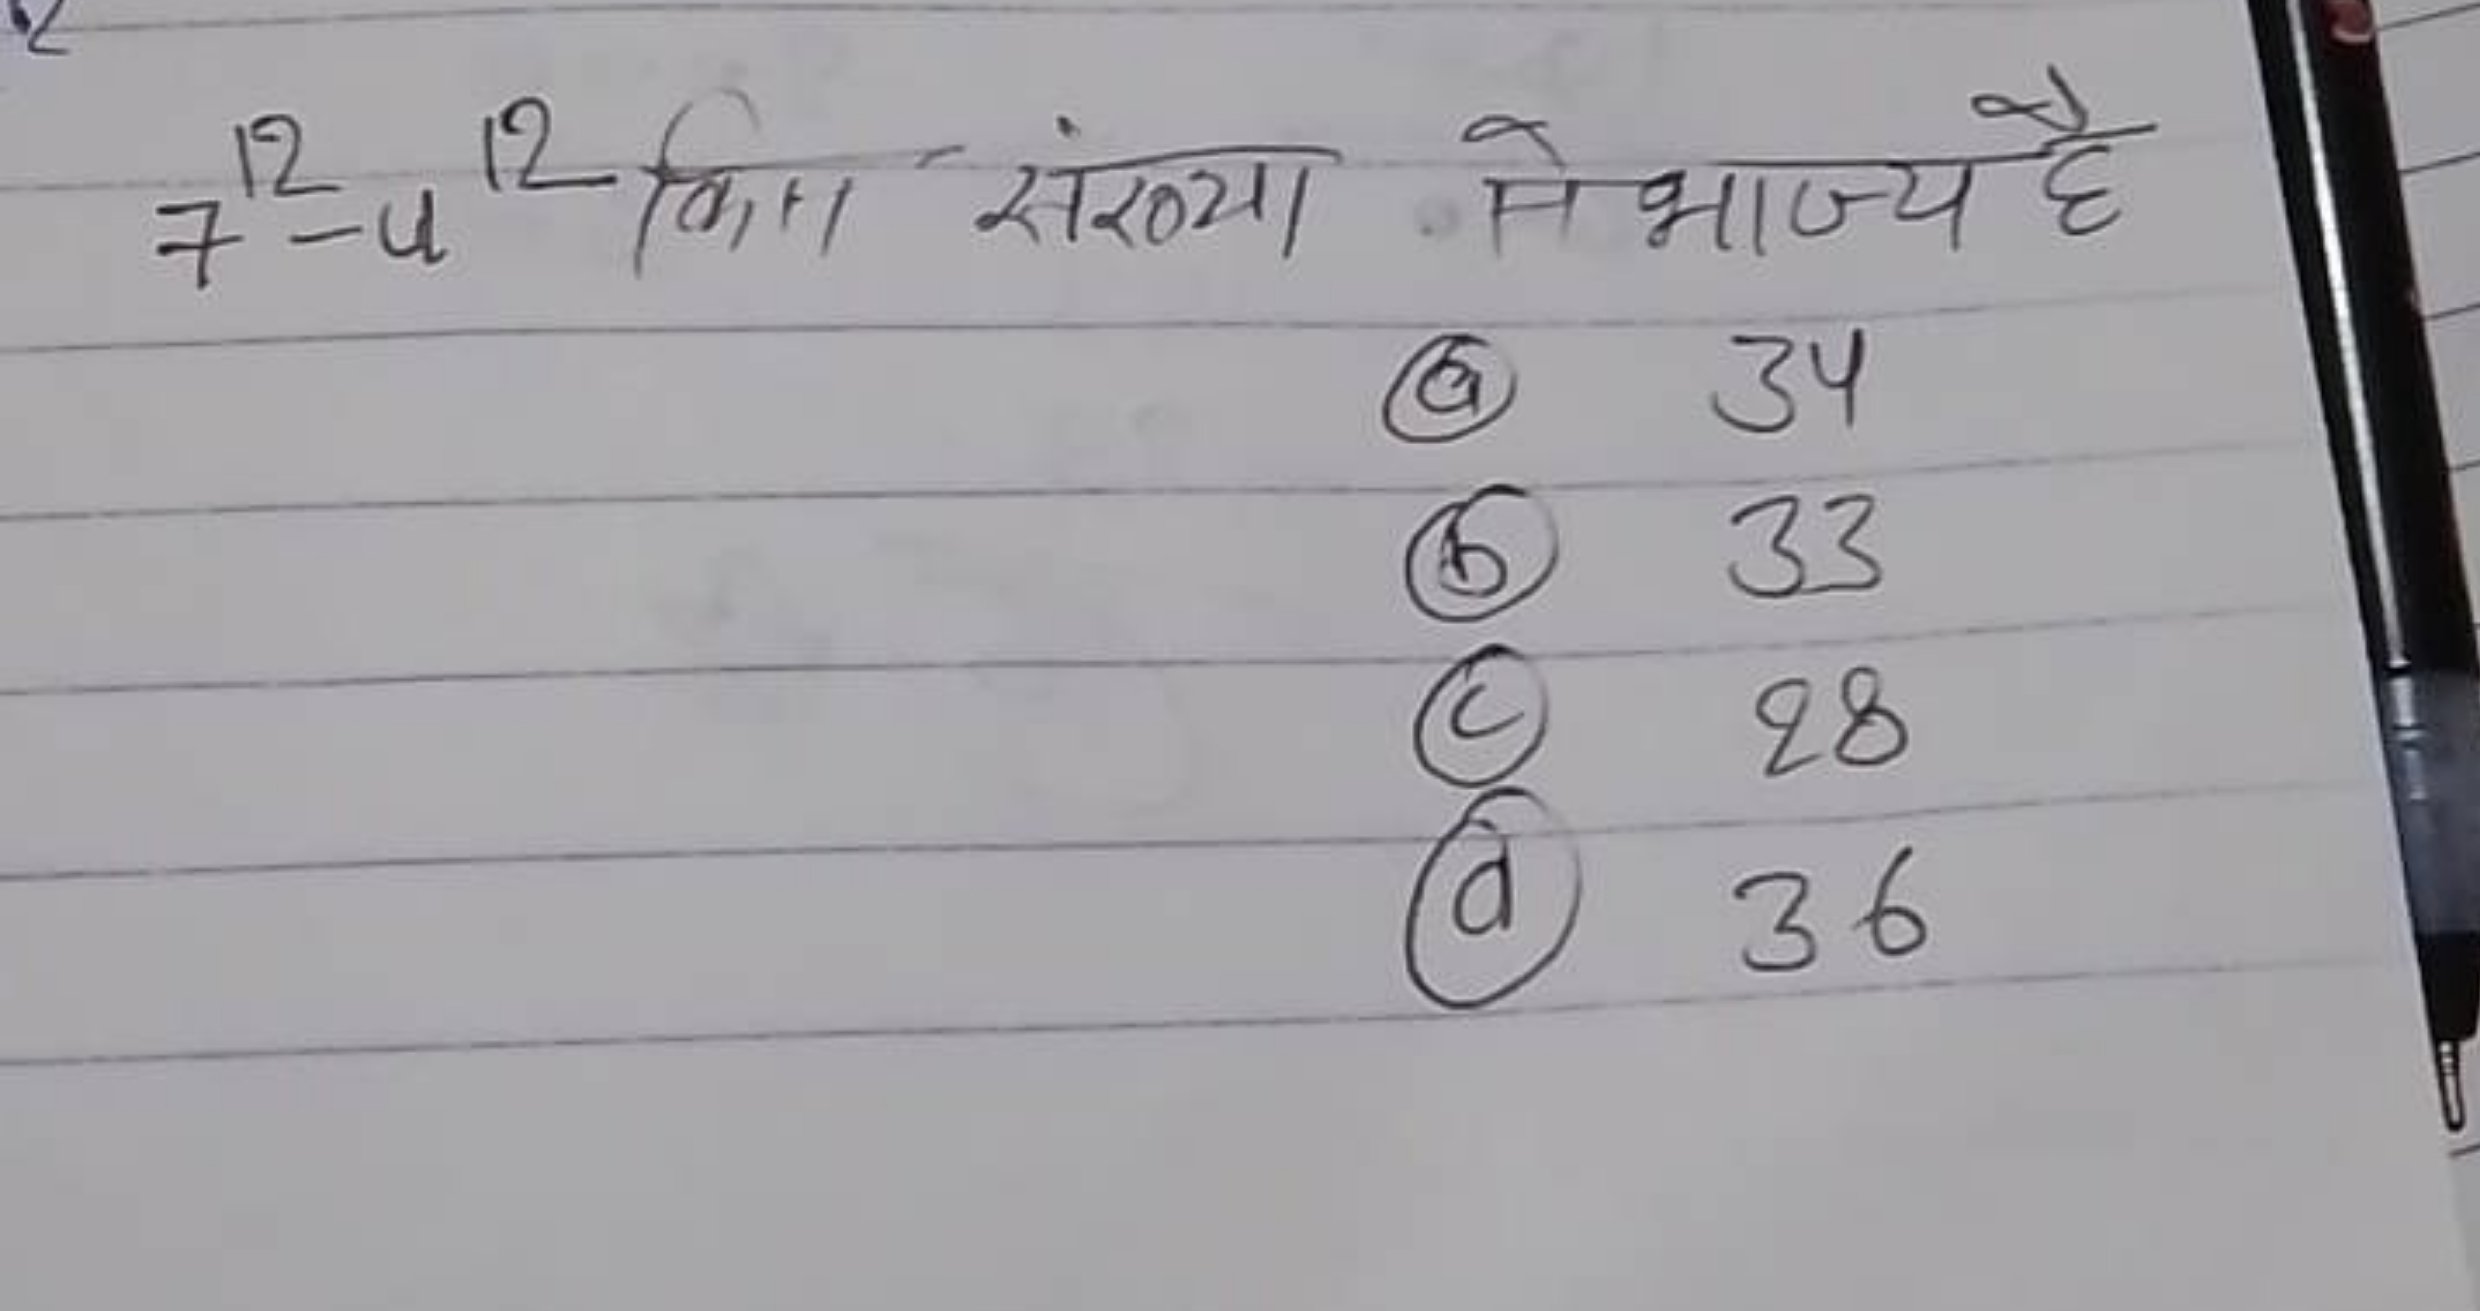 7¹² - 4¹² किस संख्या से भाज्य है
(a) 34
(b) 33
(c) 28
(d) 36